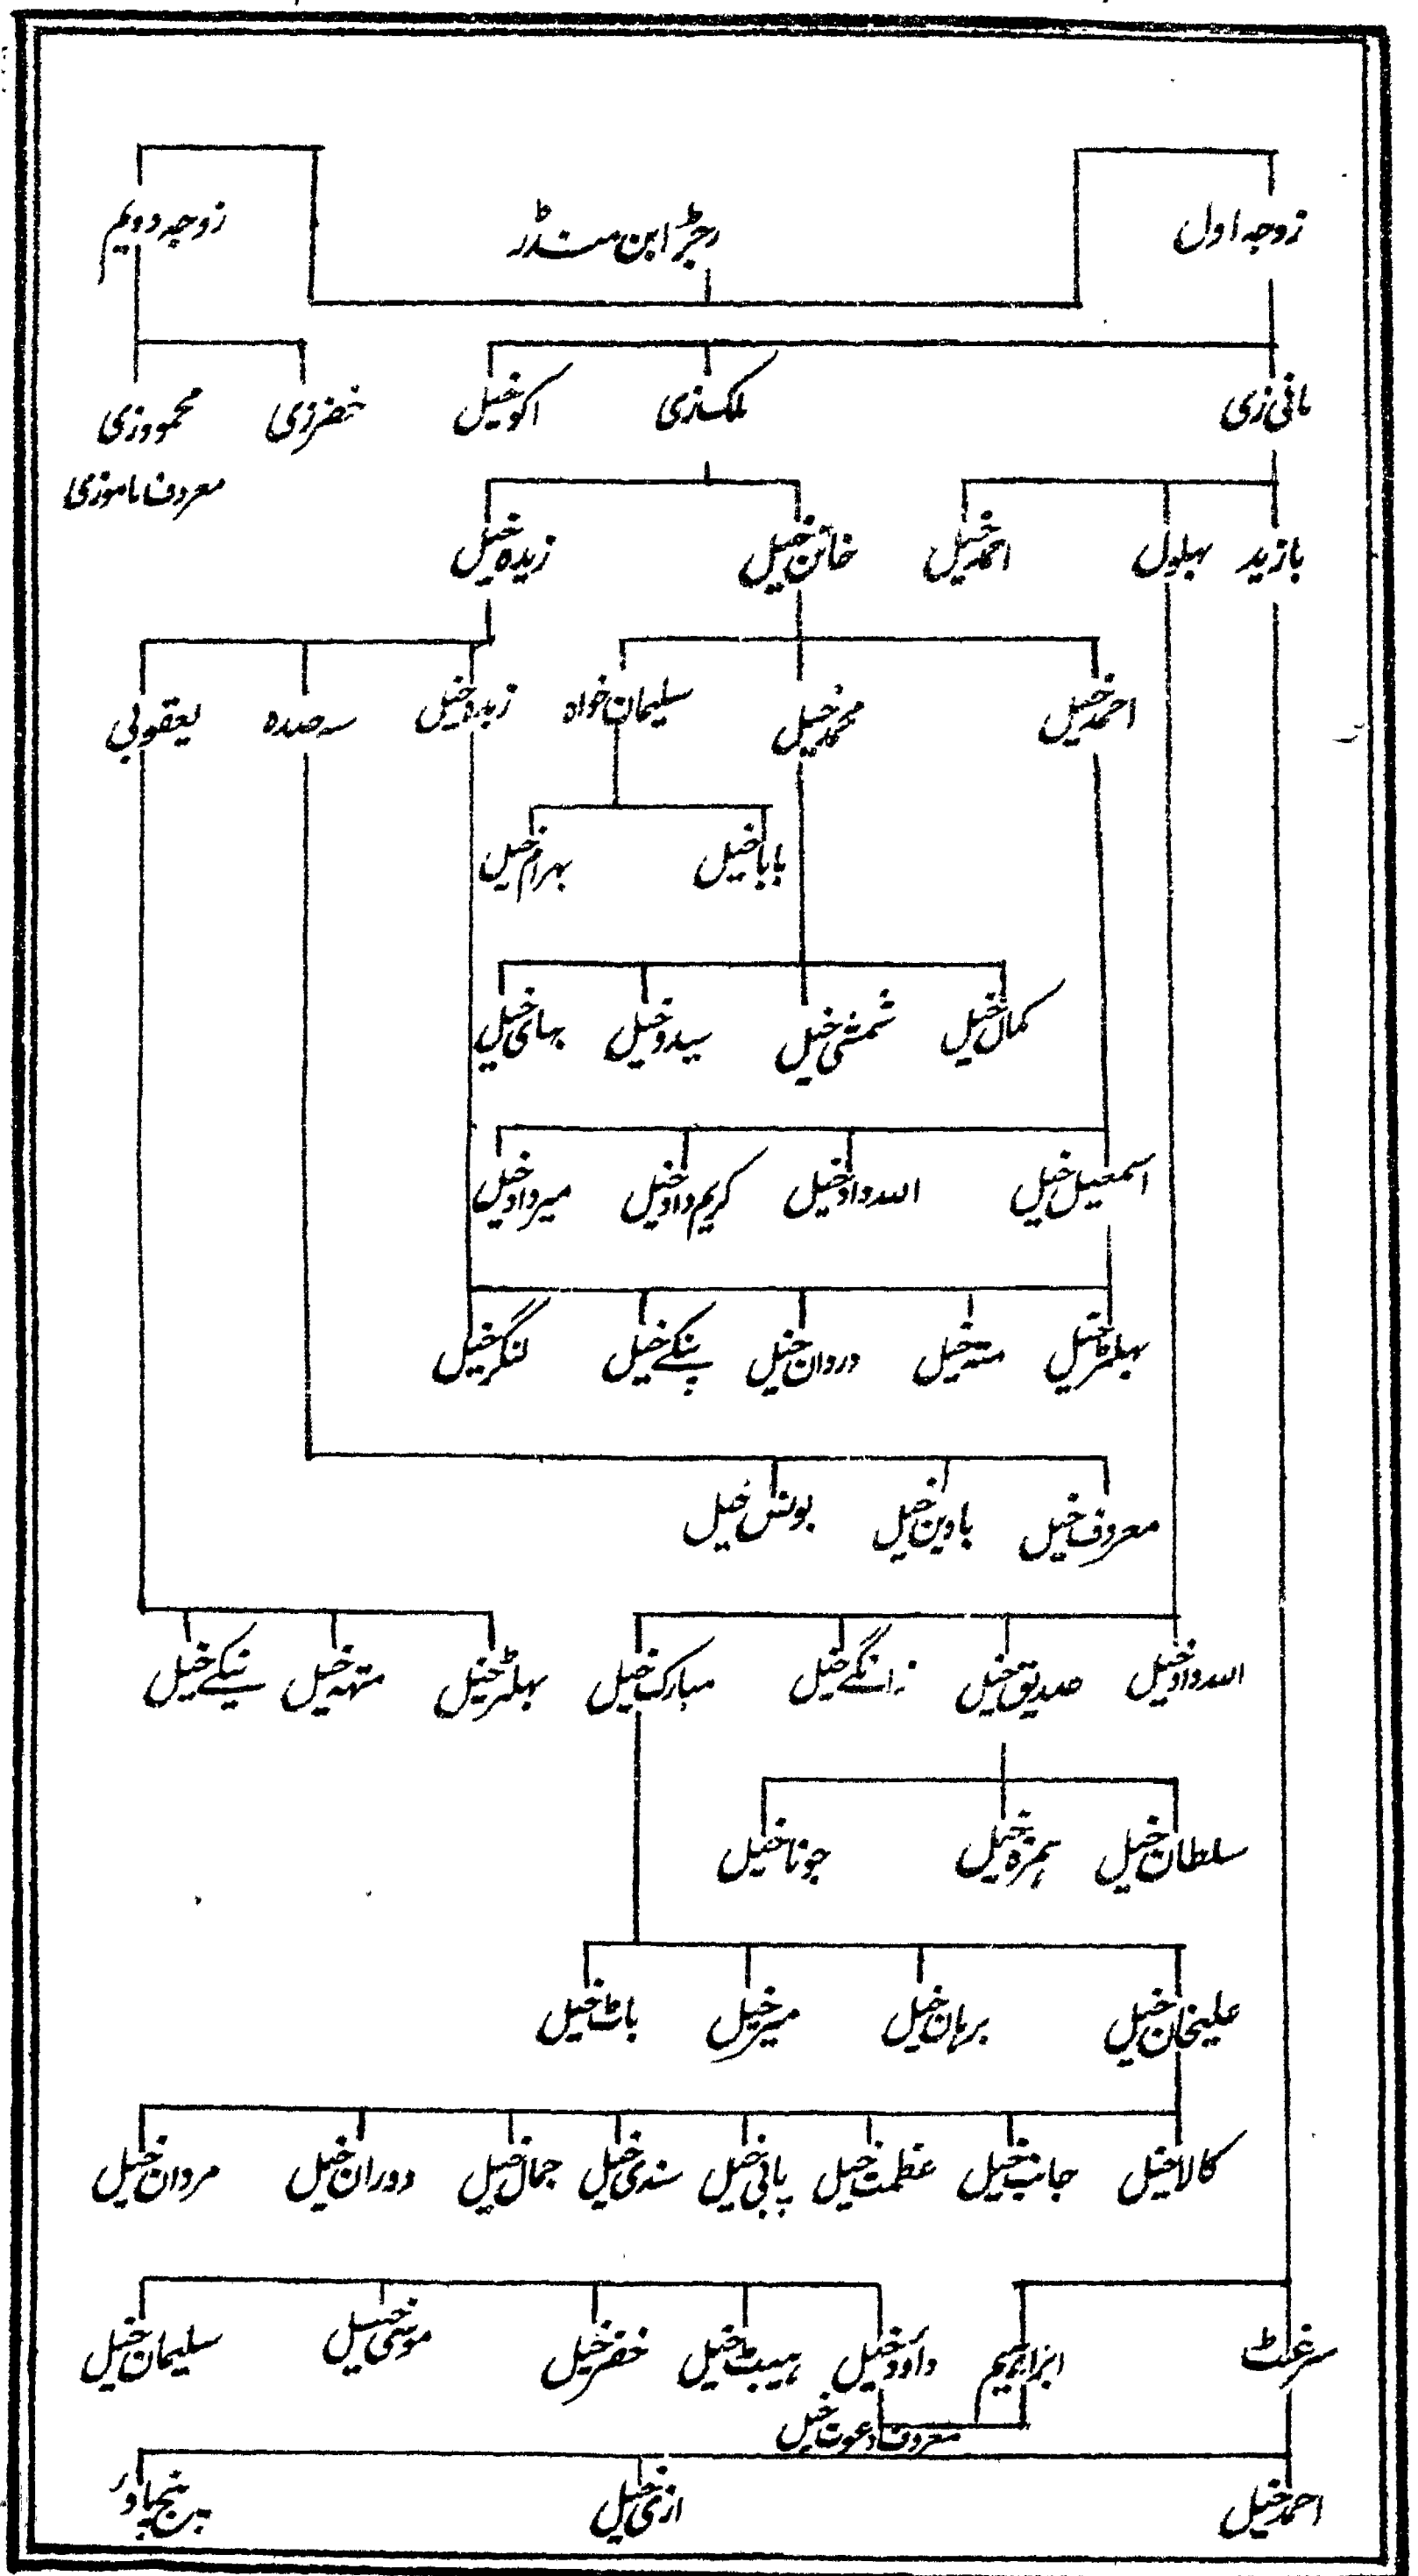 زوجہ اول رجڑ ابن منڈر زوجہ دویم
مانی زی ملک زی اکو خیل خضر زی محمود زی
معروف ماموزی
بازید بہلول احمد خیل خائن خیل زیدہ خیل
احمد خیل محمد خیل سلیمان خواہ زبدہ خیل سہ صدہ یعقوبی
بابا خیل بہرام خیل
کمال خیل شمشی خیل سیدو خیل بہای خیل
اسمعیل خیل اللہ داد خیل کریم داد خیل میر داد خیل
بہلر خیل متہ خیل دردان خیل پنکے خیل لنگر خیل
معروف خیل بادین خیل یونس خیل
اللہ داد خیل صدیق خیل زانگے خیل مبارک خیل بہلر خیل متہہ خیل نیکے خیل
سلطان خیل ہمزہ خیل جونا خیل
علیخان خیل برہان خیل میر خیل باٹ خیل
کالا خیل جانب خیل عظمت خیل پابی خیل سندی خیل جمال خیل دوران خیل مردان خیل
سرغٹ ابراہیم داؤد خیل ہیبت خیل خضر خیل موسی خیل سلیمان خیل
معروف دعوت خیل
احمد خیل ازی خیل پنج پاؤ